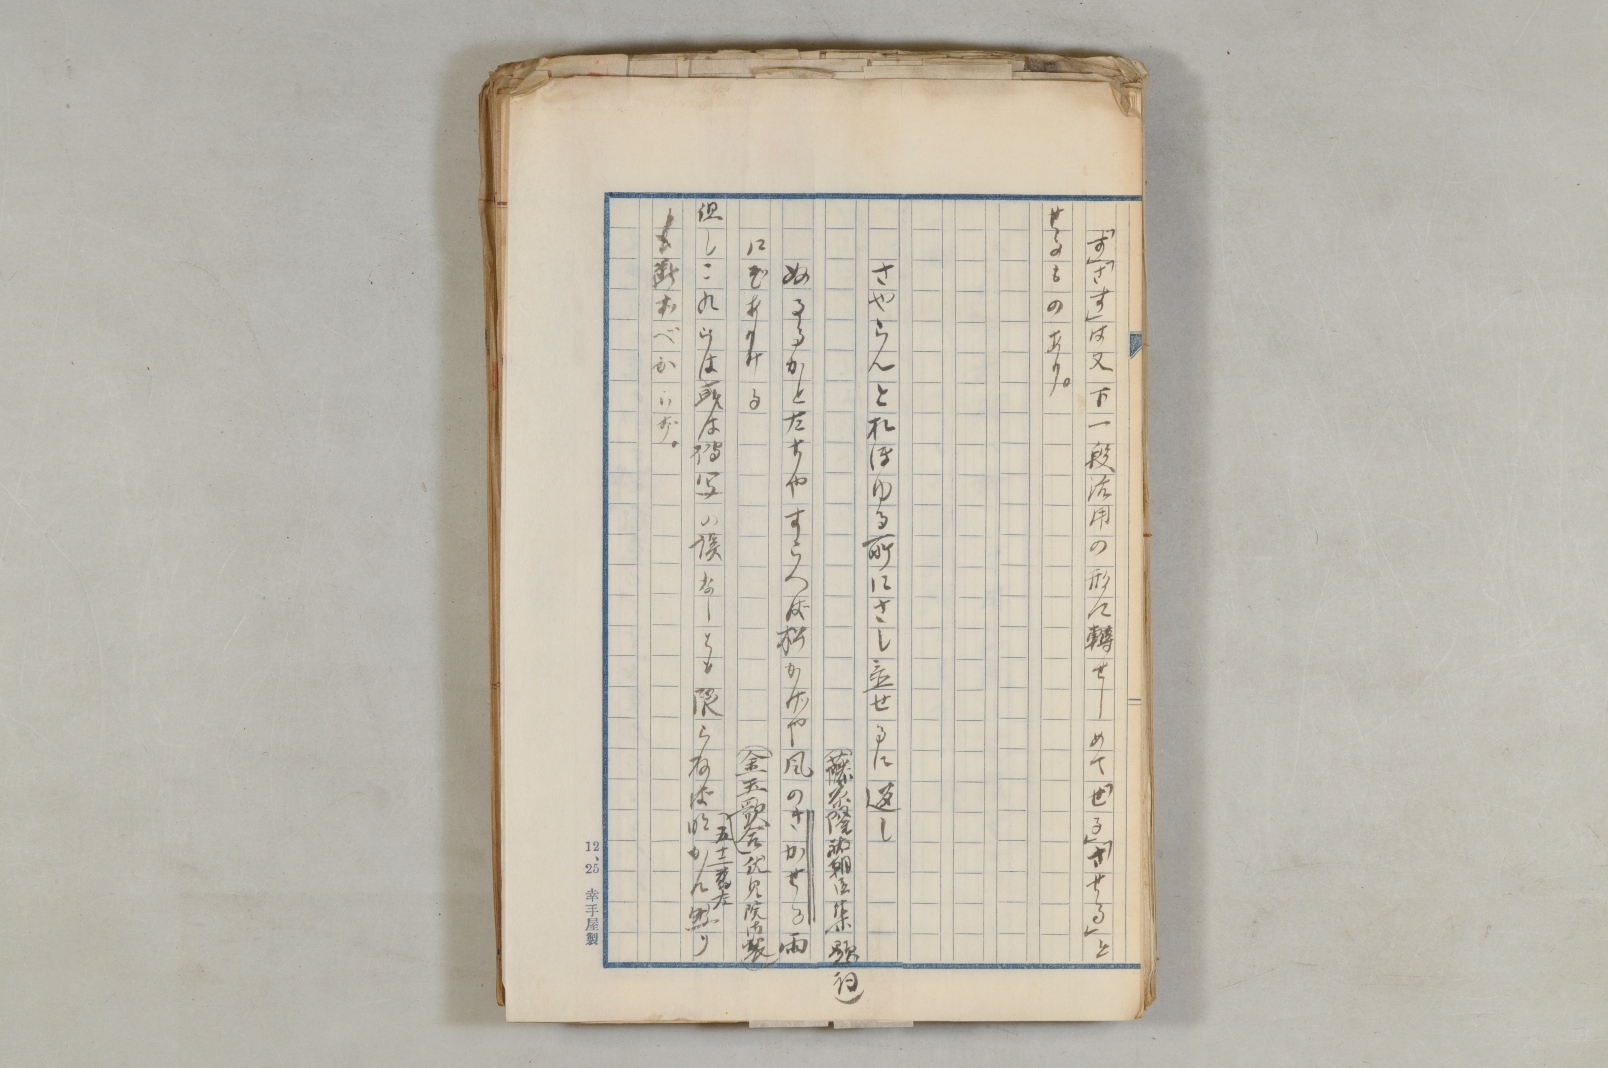 「す」「さす」は又下一段活用の形に轉ぜしめて「せる」「させる」と
せるものあり。
さやらんとれほゆる所にさし立せるに返し
(藤原隆祐朝臣集 詞)
ぬるるかとたちやすらへば松かげや風のきかせる雨
にぞありける
(金玉歌合 伏見院御製)
五十一番左
但しこれらは或は傳写の誤なしとも限らねば明かに然り
と断ずべからず。
12、25 幸手屋製